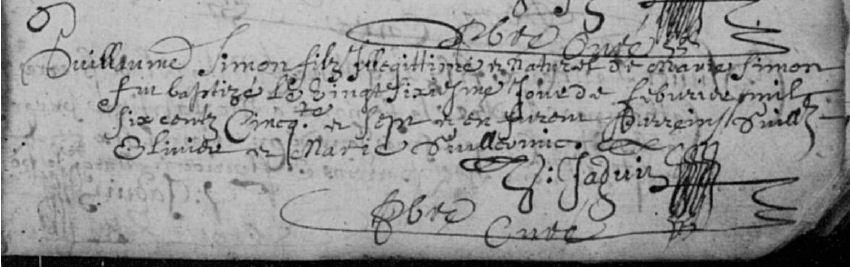 Pbre Curé
Guillaume Simon filz Illegittime et Naturel de Marie Simon
fut baptizé le vingt sixiesme Jour de feburier mil
six centz Cincq.te et sept et en furent Parreins Guill
Olivier et Marie Guillermic.
Jaduin
Pbre
Curé